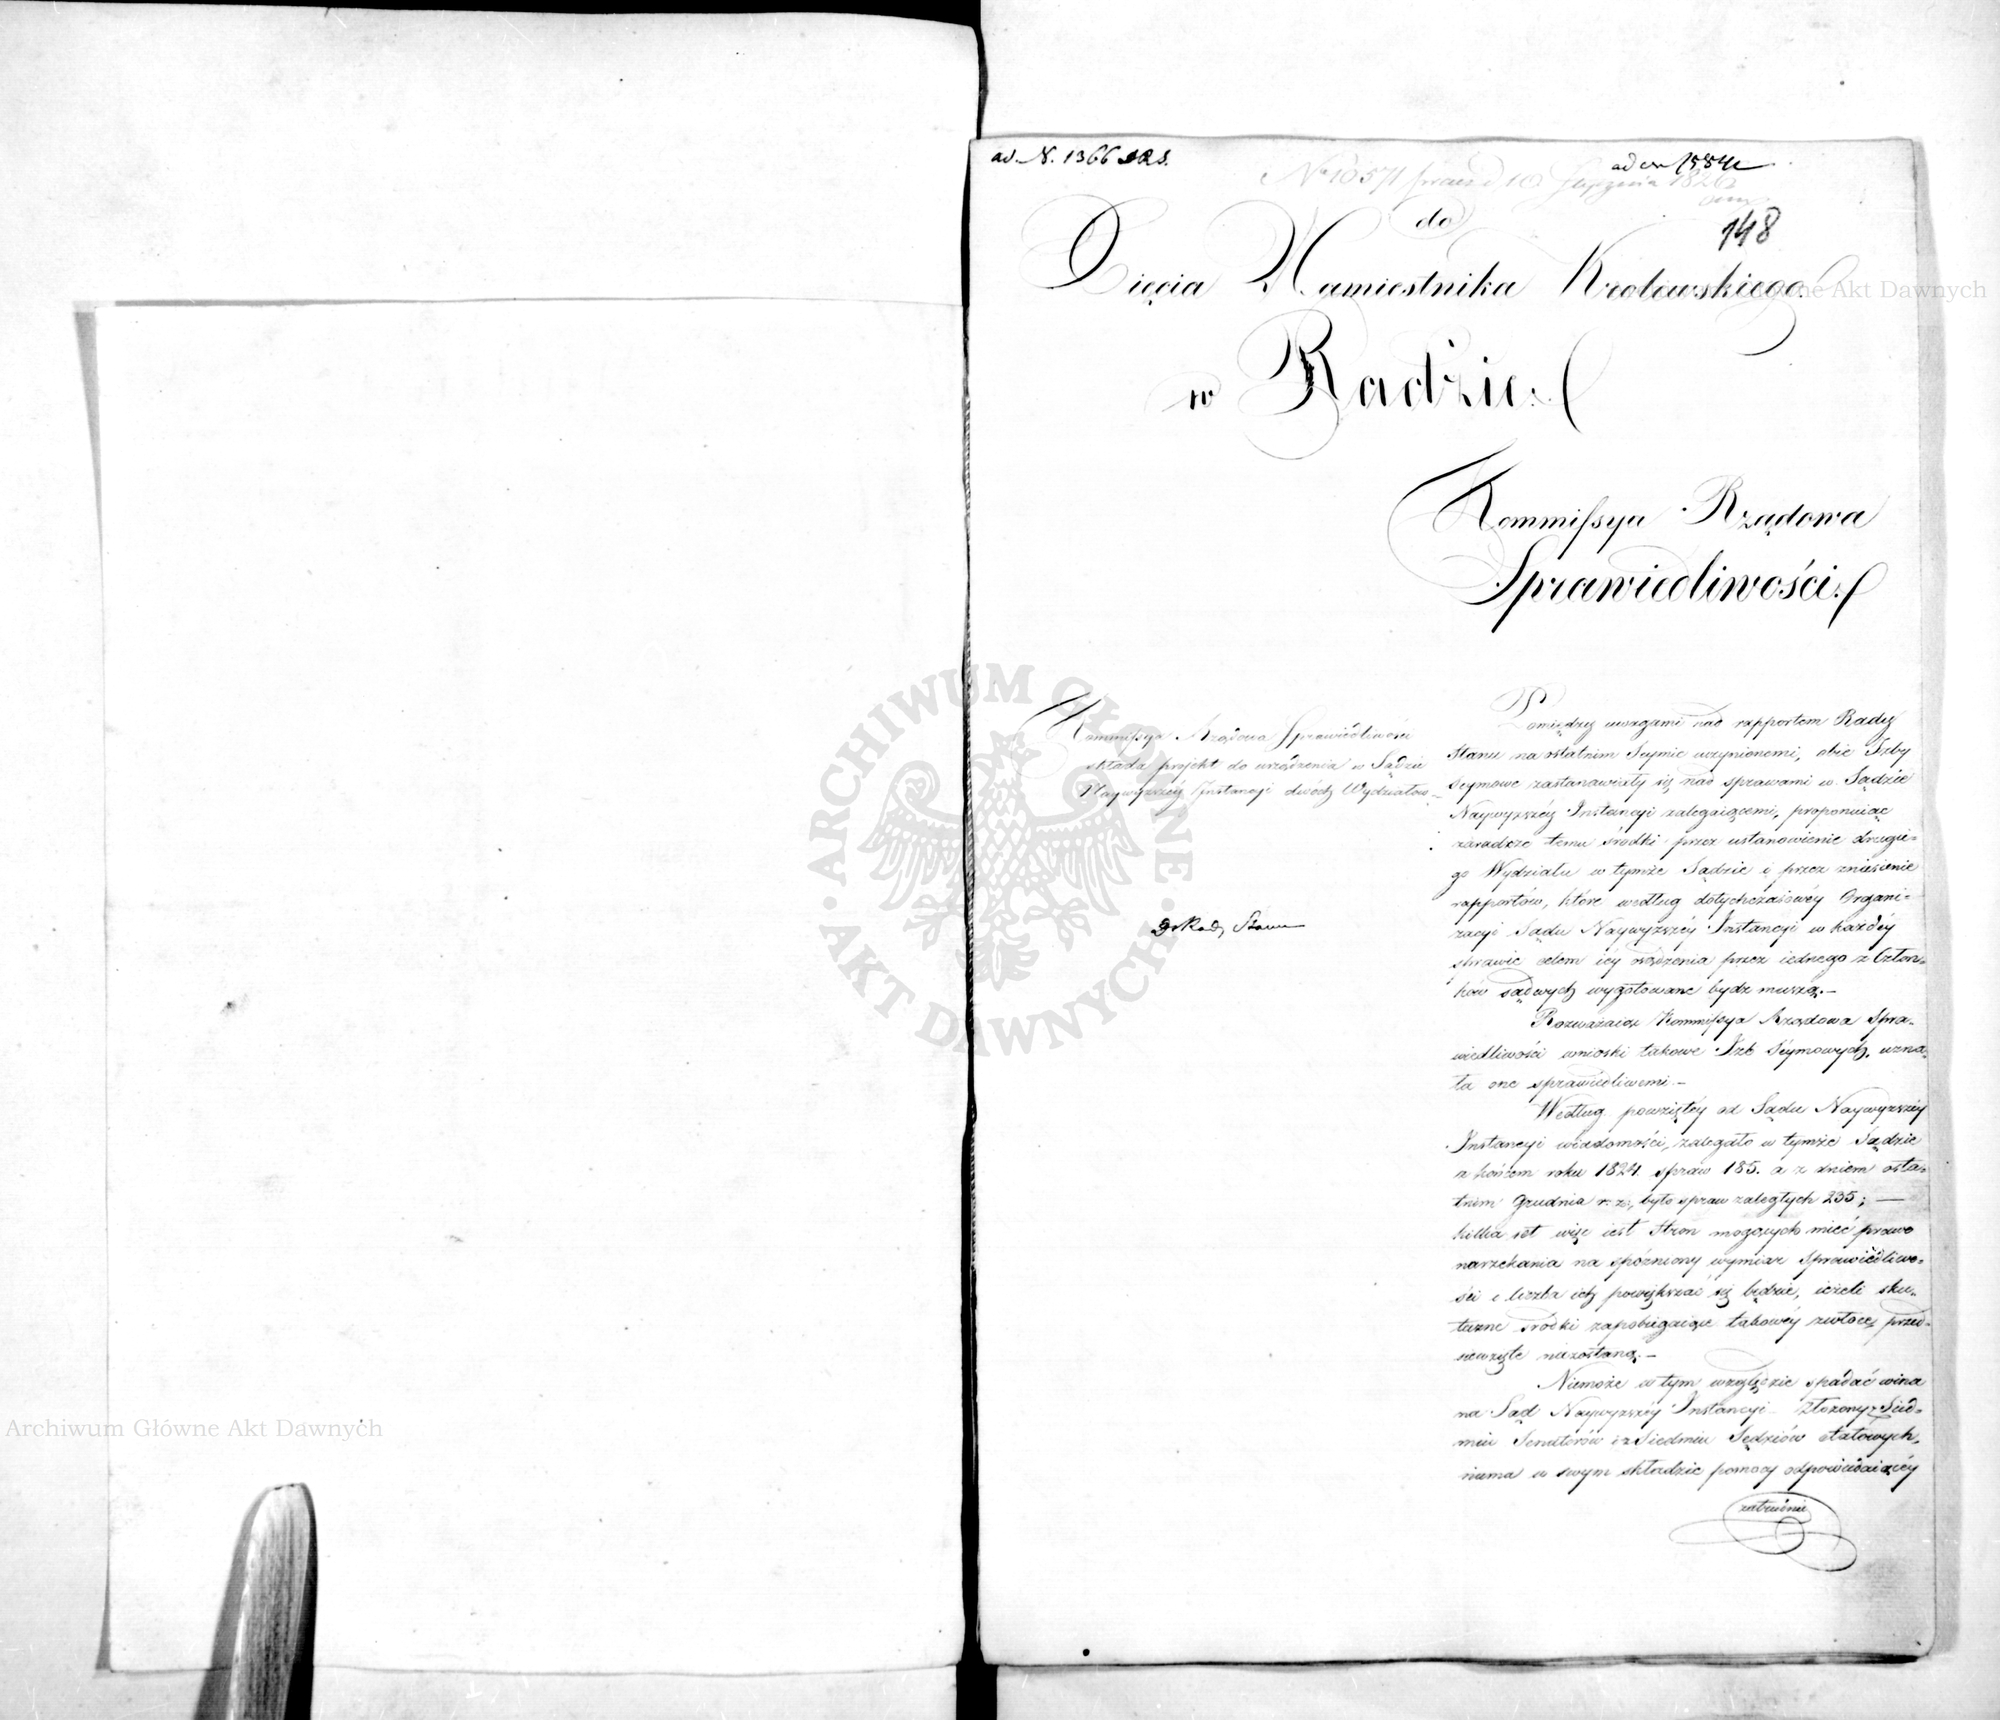 ad. N. 1366
ad N 1584
148
do
Xięcia Namiestnika Krolewskiego
w Radzie.
Kommissya Rządowa
Sprawiedliwości.
Kommissya Rządowa Sprawiedliwości
składa projekt do urządzenia w Sądzie
Naywyższéy Instancyi dwóch Wydziałów.
Do Rady Stanu
Pomiędzy uwagami nad rapportem Rady
Stanu na ostatnim Seymie uczynionemi, obie Izby
Seymowe zastanawiały się nad sprawami w Sądzie
Naywyższéy Instancyi zalegaiącemi, proponuiąc
zaradcze temu środki przez ustanowienie drugie-
go Wydziału w tymże Sądzie i przez zniesienie
rapportów, które według dotychczasowéy Organi-
zacyi Sądu Naywyższéy Instancyi w każdéy
sprawie celem iéy osądzenia przez iednego z Człon-
ków sądowych wygotowane bydz muszą.-
Rozważaiąc Kommissya Rządowa Spra-
wiedliwości wnioski takowe Izb Seymowych, uzna-
ła one sprawiedliwemi.-
Według powziętéy od Sądu Naywyższéy
Instancyi wiadomości, zalegało w tymże Sądzie
z końcem roku 1824 spraw 185. a z dniem osta-
tnim Grudnia r. z., było spraw zaległych 235; —
kilka set więc iest Stron mogących mieć prawo
narzekania na spóźniony wymiar Sprawiedliwo-
ści i liczba ich powiększać się będzie, ieżeli sku-
teczne środki zapobiegaiące takowéy zwłoce, przed-
siewzięte niezostaną.-
Niemoże w tym względzie spadać wina
na Sąd Naywyższéy Instancyi. Złożony z Sied-
miu Senatorów i z Siedmiu Sędziów etatowych,
niema w swym składzie pomocy odpowiadaiącéy
zatrudnie
Archiwum Główne Akt Dawnych
ARCHIWUM GŁÓWNE
AKT DAWNYCH
Archiwum Główne Akt Dawnych